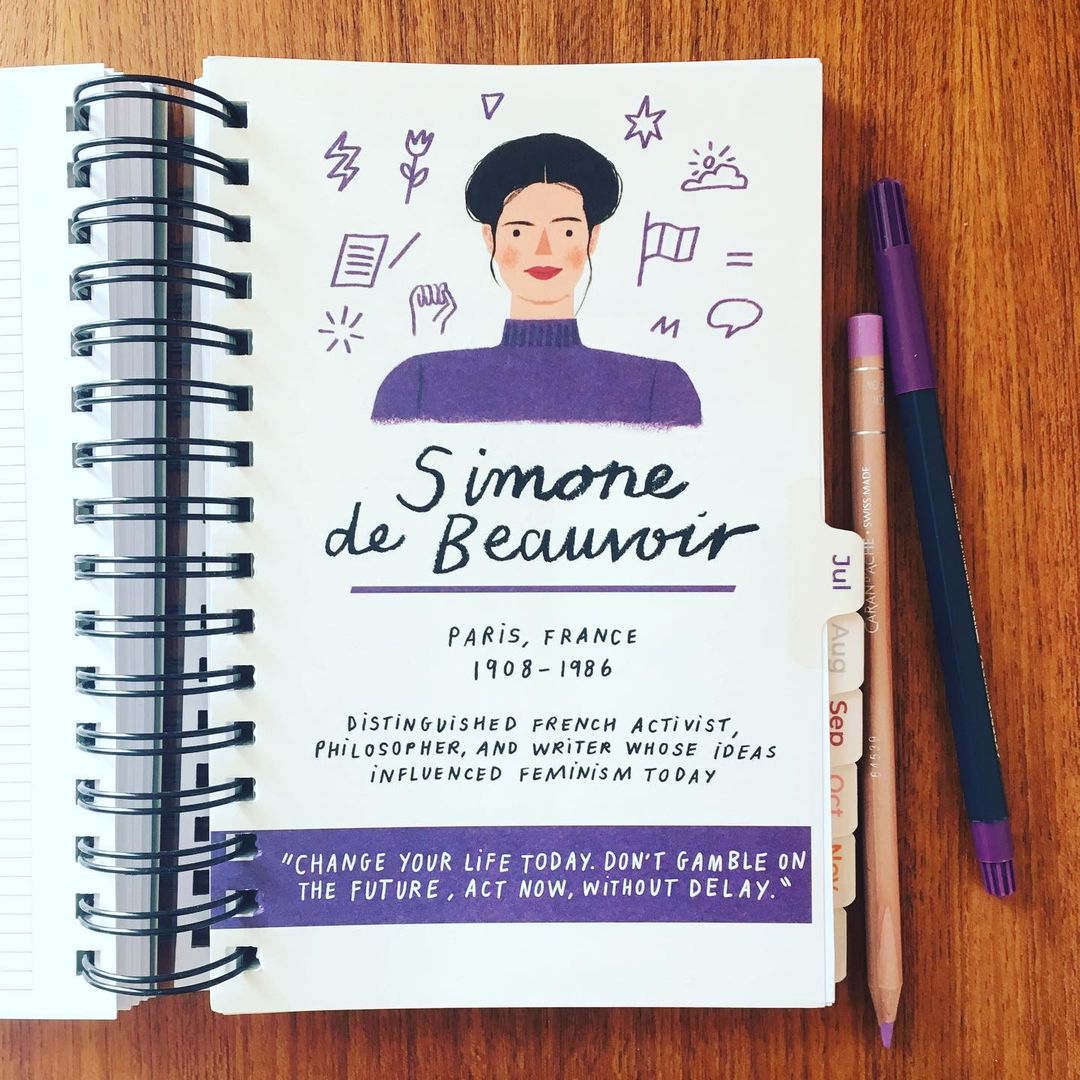 Simone
de Beauvoir
PARIS, FRANCE
1908-1986
DISTINGUISHED FRENCH ACTIVIST,
PHILOSOPHER, AND WRITER WHOSE IDEAS
INFLUENCED FEMINISM TODAY
"CHANGE YOUR LIFE TODAY. DON'T GAMBLE ON
THE FUTURE, ACT NOW, WITHOUT DELAY."
Jul
Aug
Sep
Oct
Nov
CARAN D'ACHE · SWISS MADE